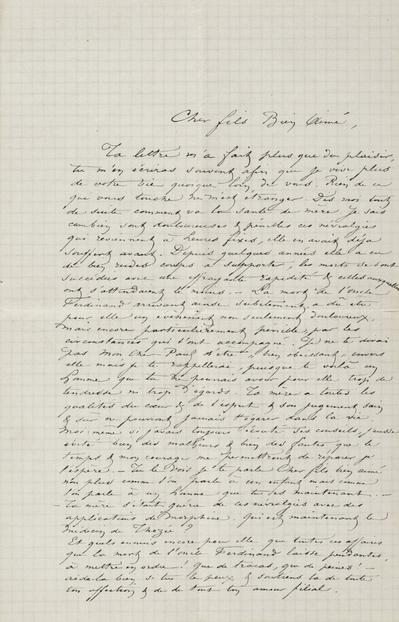 Cher fils Bien Aimé,
Ta lettre m'a fait plus que du plaisir,
tu m'en écriras souvent afin que je vive plus
de votre vie quoique loin de vous. Rien de ce
que vous touche ne m'est étranger. Dis moi tout
de suite comment va la santé de mère je sais
combien sont douloureuses & pénibles ces névralgies
qui reviennent à heures fixes, elle en avait déjà
souffert avant. Depuis quelques années elle a eu
de bien rudes coups à supporter, les morts se sont
succédées avec une effrayante rapidité &
ont s'attendaient le moins. La mort de l'oncle
Ferdinand arrivant ainsi subitement a dû être
pour elle un événement non seulement douloureux
mais encore particulièrement pénible, par les
circonstances qui l'ont accompagné. Je ne te dirai
pas mon cher Paul d'être bien obéissant envers
elle mais je te rappellerai, puisque te voilà un
homme que tu ne pourrais avoir pour elle trop de
tendresse ni trop d'égards. Ta mère a toutes les
qualités du cœur & de l'esprit & son jugement sain
& sur ne pourra jamais t'égarer dans la vie
Moi même si j'avais toujours écouté ses conseils, j'eusse
évité bien des malheurs & bien des fautes que le
temps & mon courage me permettront de réparer je
l'espère. — Tu le vois je te parle cher fils bien aimé
non plus comme l'on parle à un enfant mais comme
l'on parle à un homme que tu es maintenant. —
Ta mère s'était guérie de ces névralgies avec des
applications de morphine. Qui est maintenant le
médecin de
Et quels ennuis encore pour elle que toutes ces affaires
que la mort de l'oncle Ferdinand laisse pendantes,
à mettre en ordre! que de tracas, que de peines! —
aide-la bien si tu le peux & soutiens la de toute
ton affection & de tout ton amour filial.